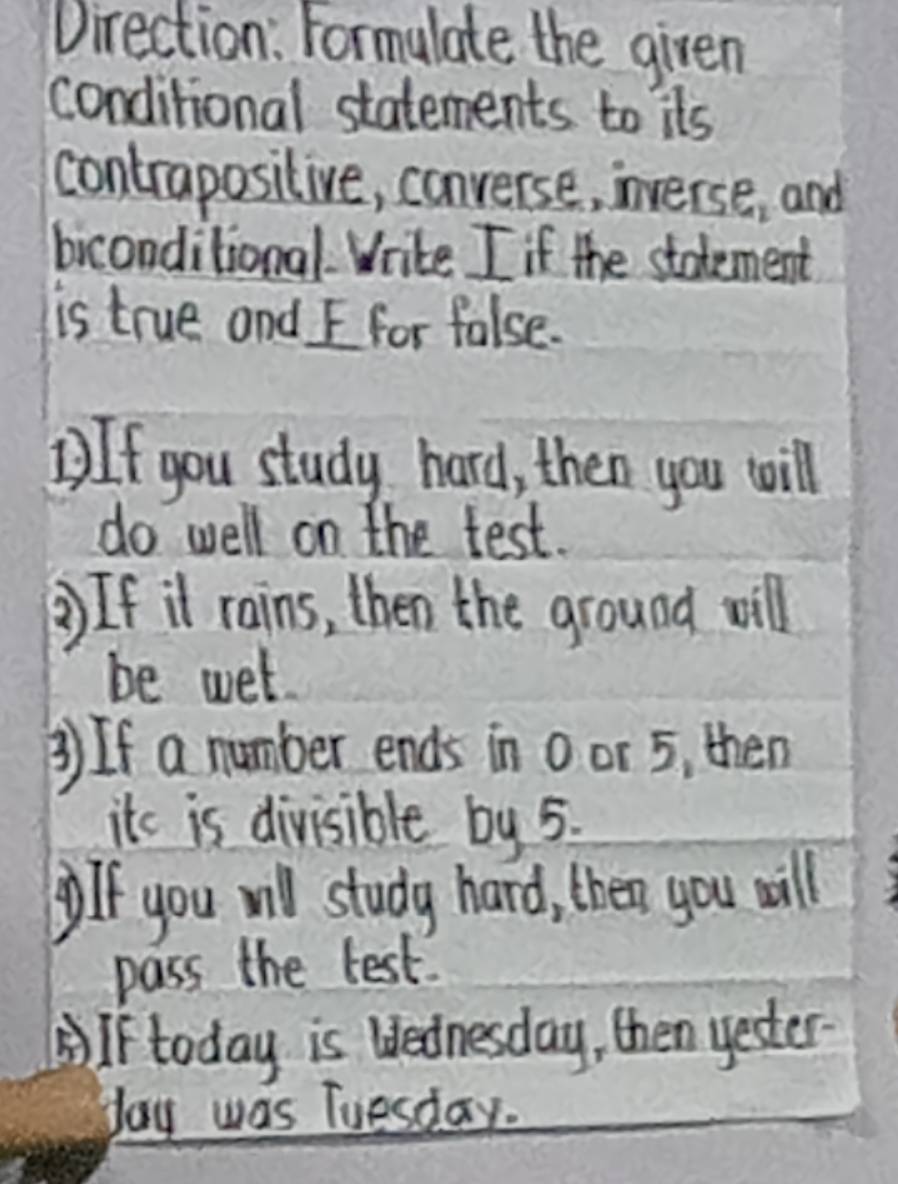 Direction: Formulate the given
conditional statements to its
contrapositive, converse, inverse, and
biconditional. Write T if the statement
is true and F for false.
1) If you study hard, then you will
do well on the test.
2) If it rains, then the ground will
be wet.
3) If a number ends in 0 or 5, then
itc is divisible by 5.
4) If you will study hard, then you will
pass the test.
5) If today is Wednesday, then yester-
day was Tuesday.